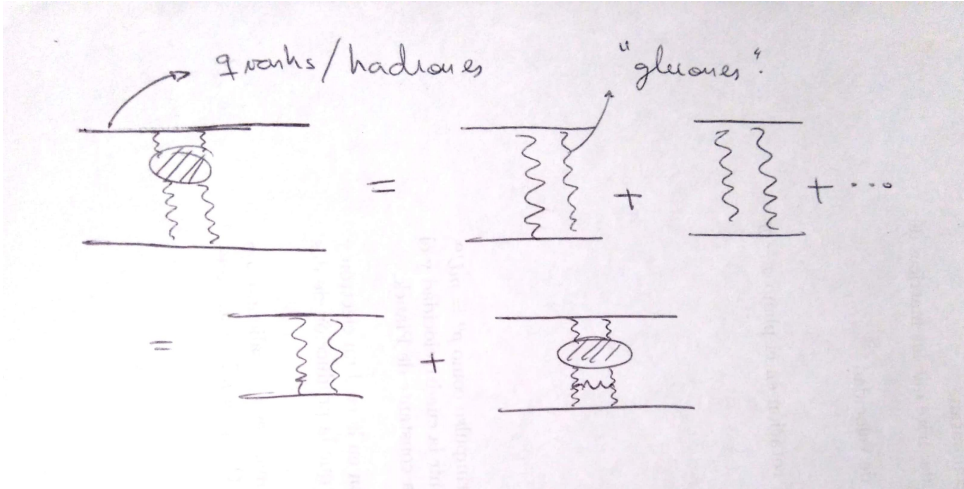 quarks/hadrones "gluones".
= + + ...
= +